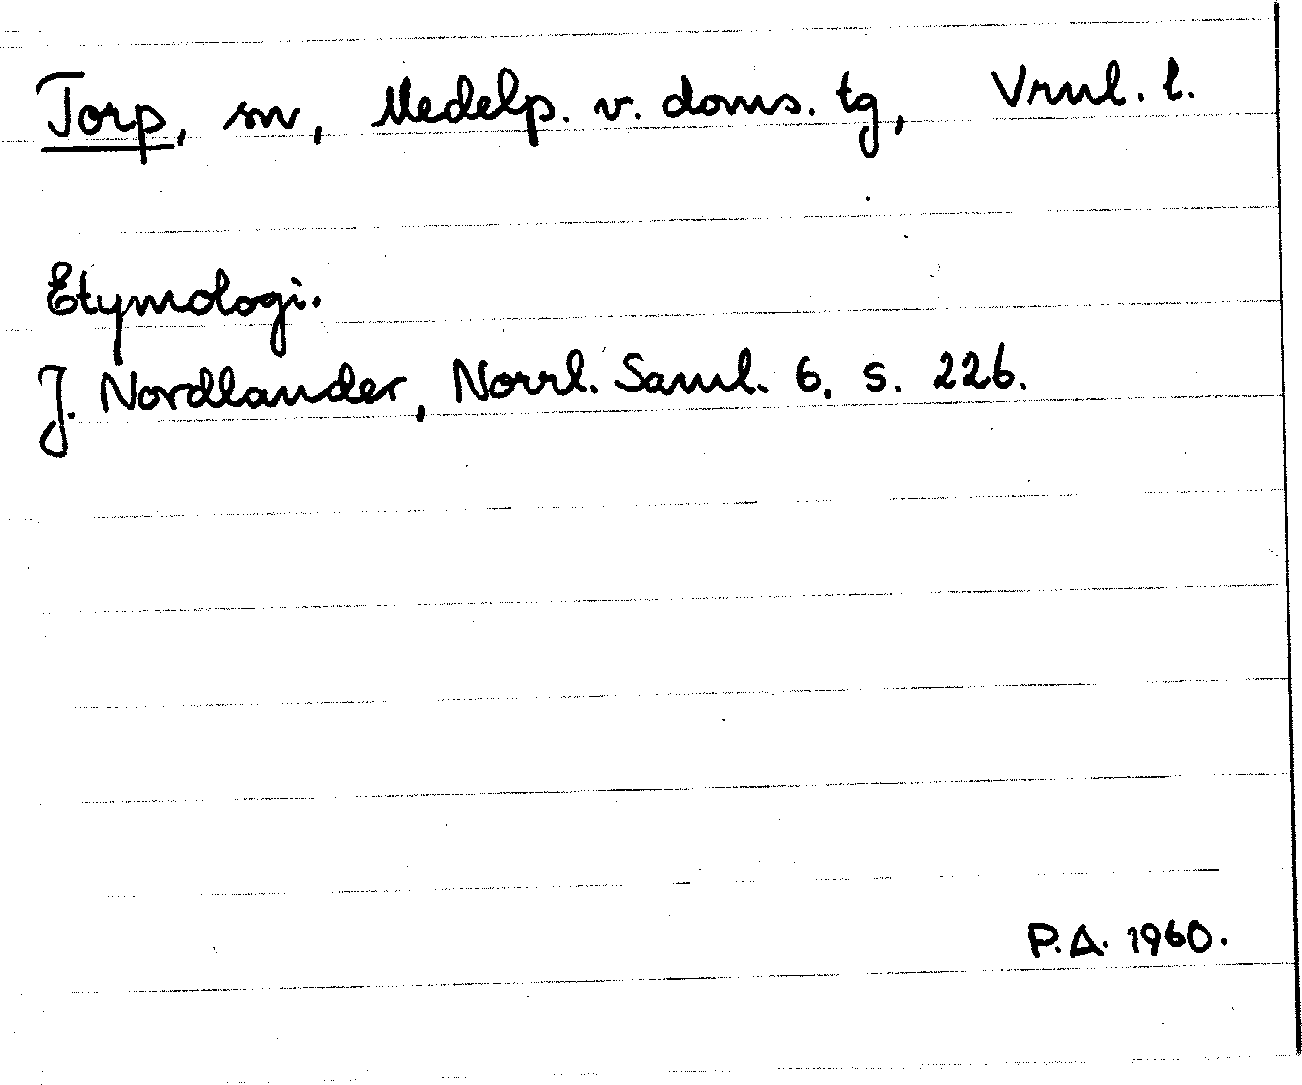 Torp, sn, Medelp. v. doms. tg, Vrnl. l.
Etymologi.
J. Nordlander, Norrl. Saml. 6, s. 226.
P.A. 1960.